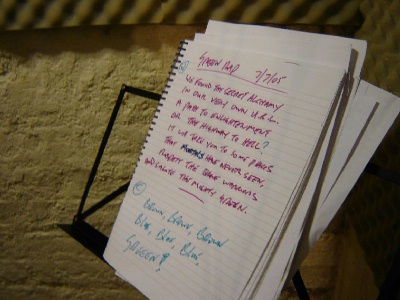 SPLEEN RAP 7/7/05
WE FOUND THE SECRET ALCHEMY
IN OUR VERY OWN U.R.L.
A PATH TO ENLIGHTENMENT
OR THE HIGHWAY TO HELL?
IT WILL TAKE YOU TO SOME PLACES
THAT MORTALS HAVE NEVER SEEN,
FORGET THE DIRE WARNINGS
AND SALUTE THE MIGHTY SPLEEN.
BROWN, BROWN, BROWN
BLUE, BLUE, BLUE,
SPLEEN!